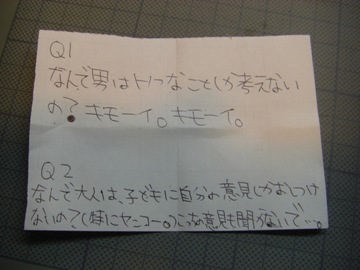 Q1
なんで男はHなことしか考えない
の?キモーイ。キモーイ。
Q2
なんで大人は、子どもに自分の意見しかおしつけ
ないの?(特にヤンコー。)こっちの意見も聞かないで…。